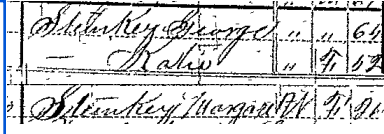 Stenkey George " " 64
— Katie " F 52
Stenkey Margaret W F